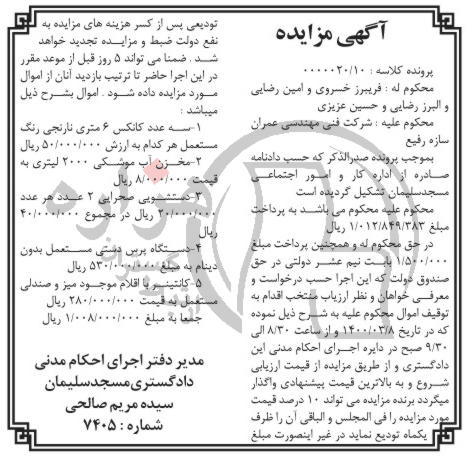 آگهی مزایده
پرونده کلاسه : ۰۰۰۰۰۲۰/۱۰
محکوم له : فریبرز خسروی و امین رضایی
و البرز رضایی و حسین عزیزی
محکوم علیه : شرکت فنی مهندسی عمران
سازه رفیع
بموجب پرونده صدرالذکر که حسب دادنامه
صادره از اداره کار و امور اجتماعی
مسجدسلیمان تشکیل گردیده است
محکوم علیه محکوم می باشد به پرداخت
مبلغ ۱/۰۱۲/۸۴۹/۳۸۳ ریال
در حق محکوم له و همچنین پرداخت مبلغ
۱/۵۰۰/۰۰۰ بابت نیم عشر دولتی در حق
صندوق دولت که این اجرا حسب درخواست و
معرفی خواهان و نظر ارزیاب منتخب اقدام به
توقیف اموال محکوم علیه به شرح ذیل نموده
که در تاریخ ۱۴۰۰/۰۳/۸ و از ساعت ۸/۳۰ الی
۹/۳۰ صبح در دایره اجرای احکام مدنی این
دادگستری و از طریق مزایده از قیمت ارزیابی
شروع و به بالاترین قیمت پیشنهادی واگذار
میگردد برنده مزایده می تواند ۱۰ درصد قیمت
مورد مزایده را فی المجلس و الباقی آن را ظرف
یکماه تودیع نماید در غیر اینصورت مبلغ
تودیعی پس از کسر هزینه های مزایده به
نفع دولت ضبط و مزایده تجدید خواهد
شد . ضمنا می تواند ۵ روز قبل از موعد مقرر
در این اجرا حاضر تا ترتیب بازدید آنان از اموال
مورد مزایده داده شود . اموال بشرح ذیل
میباشد :
۱-سه عدد کانکس ۶ متری نارنجی رنگ
مستعمل هر کدام به ارزش ۵۰/۰۰۰/۰۰۰ ریال
۲-مخزن آب موشکی ۲۰۰۰ لیتری به
قیمت ۸/۰۰۰/۰۰۰ ریال
۳-دستشویی صحرایی ۲ عدد هر عدد
۲۰/۰۰۰/۰۰۰ ریال در مجموع ۴۰/۰۰۰/۰۰۰
ریال
۴-دستگاه پرس دستی مستعمل بدون
دینام به مبلغ ۵۳۰/۰۰۰/۰۰۰ ریال
۵-کانتینر با اقلام موجود میز و صندلی
مستعمل به قیمت ۲۸۰/۰۰۰/۰۰۰ ریال
جمعا به مبلغ ۱/۰۰۸/۰۰۰/۰۰۰ ریال
مدیر دفتر اجرای احکام مدنی
دادگستری مسجدسلیمان
سیده مریم صالحی
شماره : ۷۴۰۵